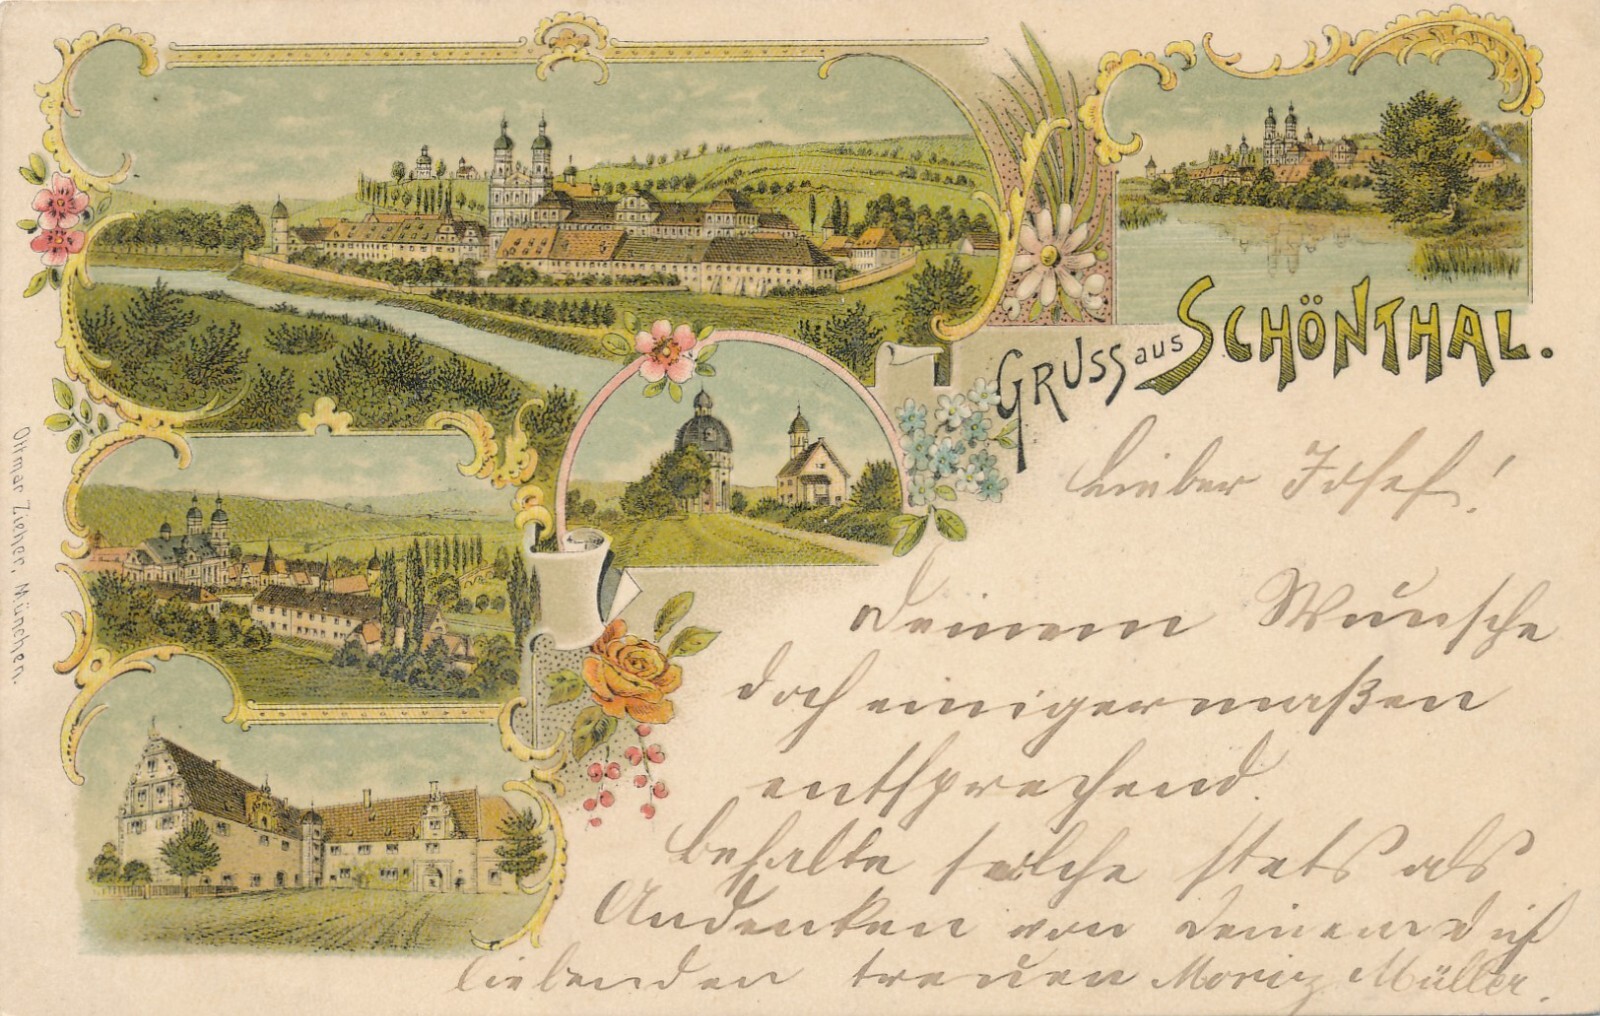 GRUSS aus SCHÖNTHAL.
Lieber Josef!
Deinem Wunsche
doch einigermaßen
entsprechend.
behalte solche stets als
Andenken von Deinem Dich
liebenden treuen Moriz Müller.
Ottmar Zieher, München.